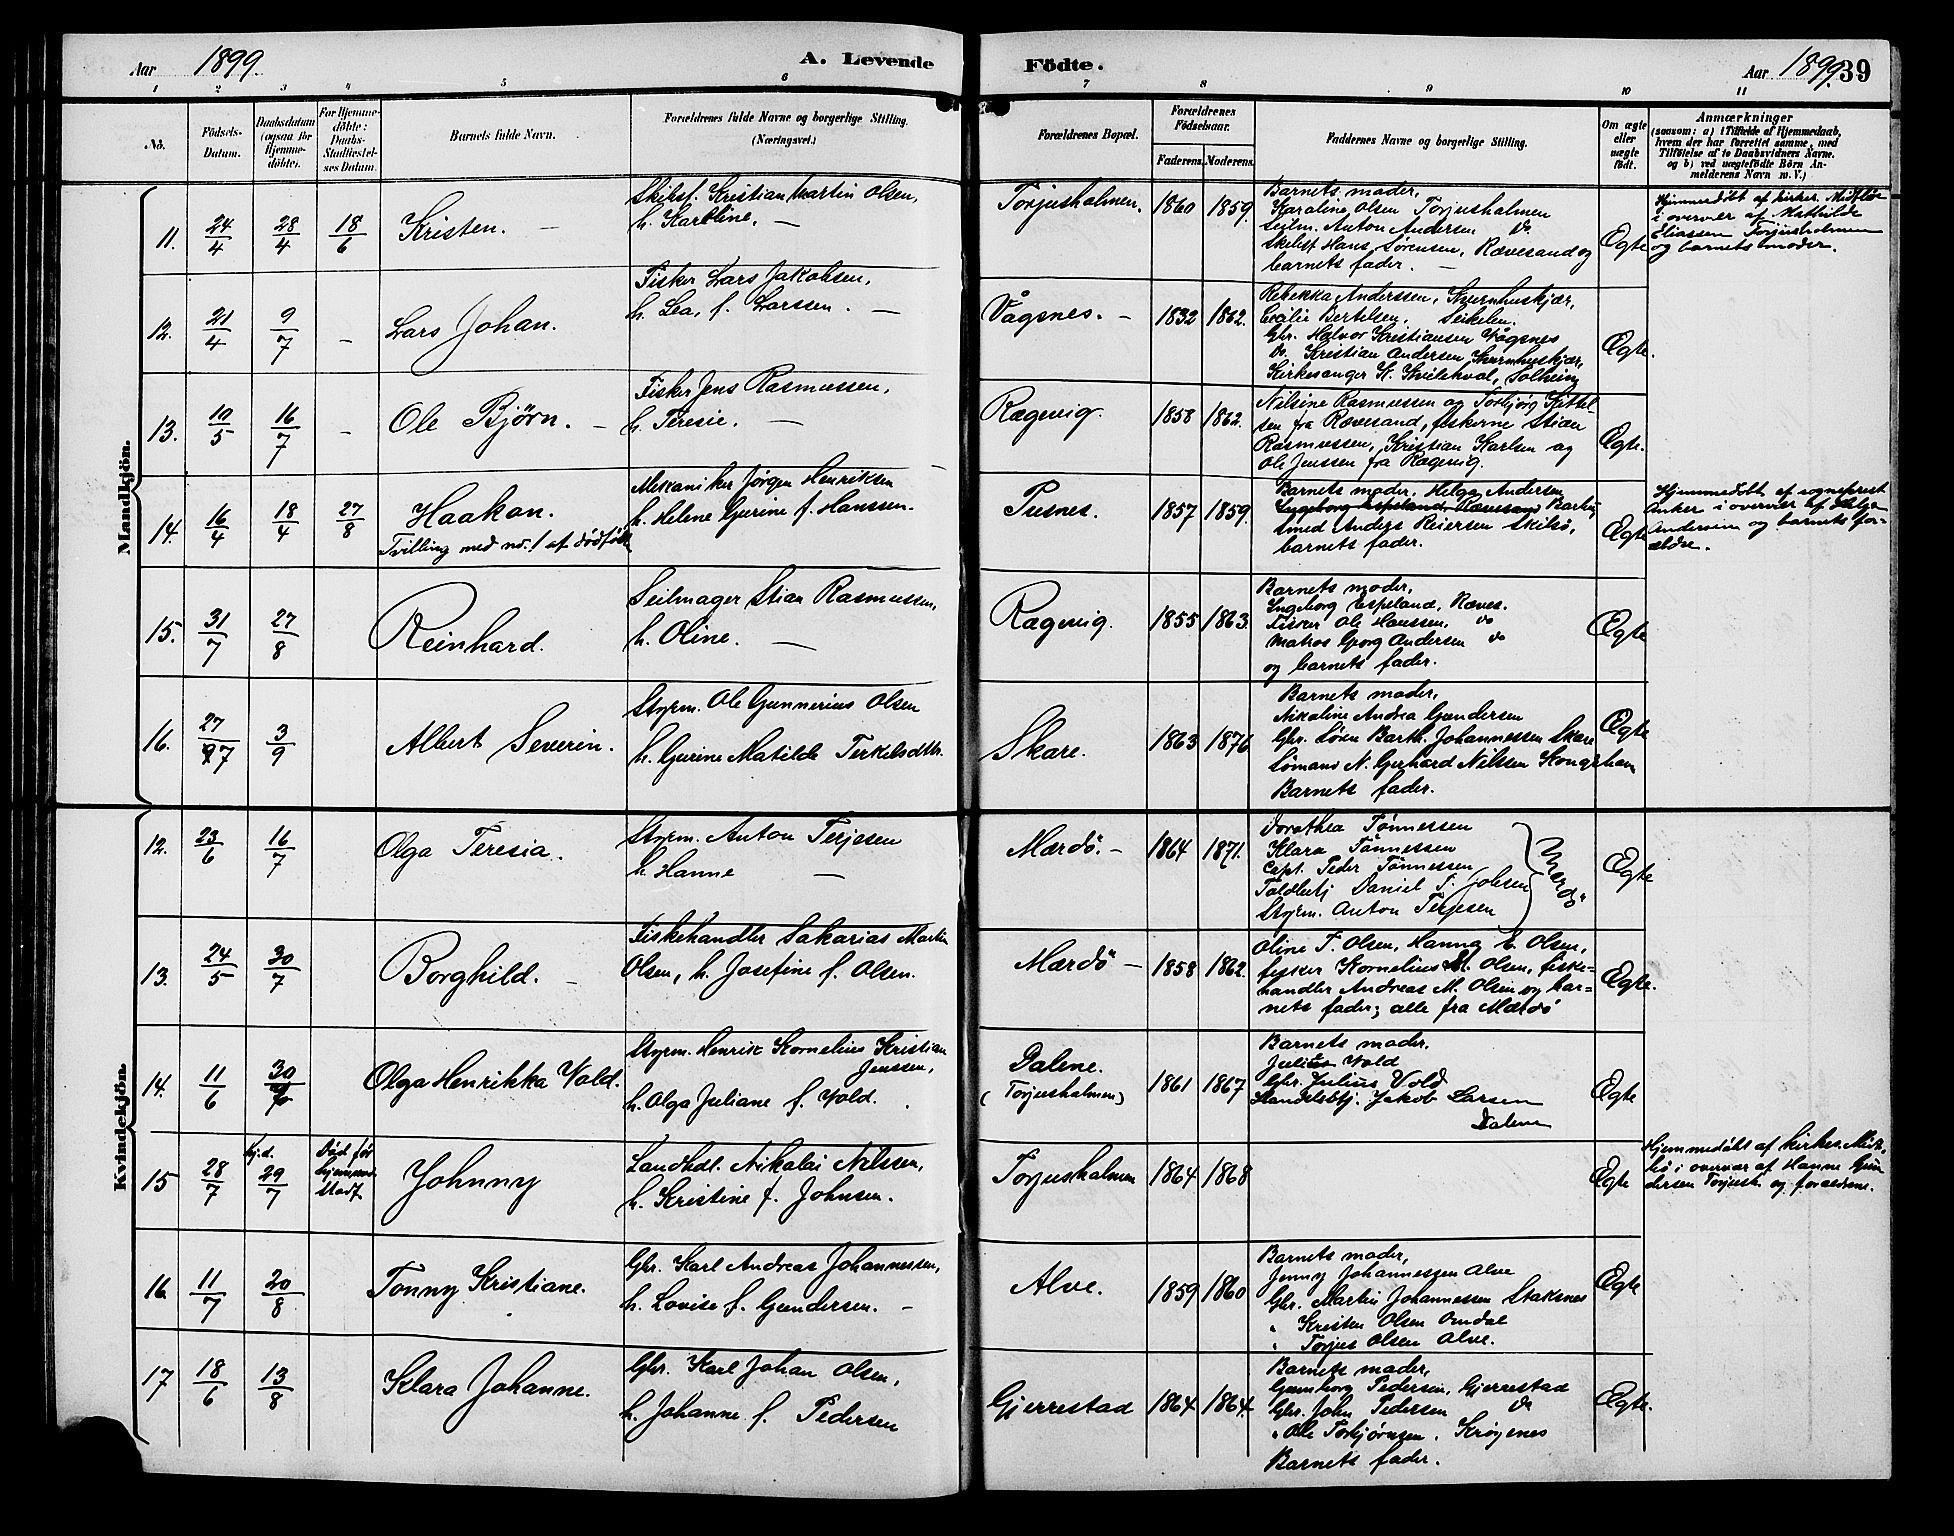 Aar 1899. A. Levende Födte. Aar 1899. 39
1 2 3 4 5 6 7 8 9 10 11
No.
Födsels-
Datum.
Daabsdatum
(ogsaa for
Hjemme-
döbte).
For Hjemme-
döbte:
Daabs-
Stadfæstel-
ses Datum.
Barnets fulde Navn.
Forældrenes fulde Navne og borgerlige Stilling.
(Næringsvei.)
Forældrenes Bopæl.
Forældrenes
Födselsaar.
Faderens. Moderens.
Faddernes Navne og borgerlige Stilling.
Om ægte
eller
uægte
födt.
Anmærkninger
(saasom: a) i Tilfælde af Hjemmedaab,
hvem der har forrettet samme, med
Tilföielse af to Daabsvidners Navne,
og b) ved uægtefödte Börn An-
melderens Navn m. V.)
Mandkjön.
11. 24/4 28/4 18/6 Kristen. —
Skibsf. Kristian Martin Olsen,
h. Karoline. —
Torjusholmen. 1860 1859.
Barnets moder,
Karoline Olsen Torjusholmen
Seilm. Anton Andersen do
Skibsf Hans Sørensen, Rævesand og
barnets fader. —
Ægte
Hjemmedöbt af kirkes.
i overvær af Mathilde
Eliassen Torjusholmen
og barnets moder.
12. 21/4 9/7 — Lars Johan.
Fisker Lars Jakobsen,
h. Lea, f. Larssen. —
Vågsnes. — 1832 1862.
Rebekka Anderssen, Skurnhuskjær,
Cecilie Bertelsen,
Gbr. Halvor Kristiansen Vågsnes
Do. Kristian Andersen Skurnhuskjær,
Kirkesanger K. Solheim
Ægte.
13. 10/5 16/7 — Ole Bjørn. —
Fisker Jens Rasmussen,
h. Teresie. —
Rægevig. 1858 1862.
Nilsine Rasmussen og Torbjørg Kittel-
sen fra Rævesand, fiskerne Stian
Rasmussen, Kristian Karlsen og
Ole Jenssen fra Rægevig.
Ægte.
14. 16/4 18/4 27/8 Haakon.
Tvilling med no. 1 af dødfødte
Mekaniker Jørgen Henriksen
h. Helene Gurine f. Hanssen.
Pusnes. 1857 1859.
Barnets moder, Helga Andersen
Ingeborg Espeland Rævesand
smed Anders Reiersen Skilsö,
barnets fader.
Ægte
Hjemmedöbt af sogneprest
Anker i overvær af Helga
Andersen og barnets for-
ældre.
15. 31/7 27/8 Reinhard.
Seilmager Stian Rasmussen,
h. Oline. —
Rægevig. 1855 1863.
Barnets moder,
Ingeborg Espeland, Ræves.
Fisker Ole Hanssen, do
Matros Georg Andersen do
og barnets fader.
Ægte
16. 27/7 3/9 Albert Severin.
Styrm. Ole Gunnerius Olsen
h. Gurine Matilde Terkelsdtr.
Skare. 1863 1876
Barnets moder,
Nikoline Andrea Gundersen
Gbr. Sören Barth. Johannessen Skare
Sømand N. Gerhard Nilssen Kongshavn
Barnets fader.
Ægte
Kvindekjön.
12. 23/6 16/7 Olga Teresia.
Styrm. Anton Terjesen
h. Hanne —
Mærdö. — 1864 1871.
Dorothea Tönnessen
Klara Tönnessen
Capt. Peder Tönnessen
Toldbetj Daniel T. Johsen
Styrm. Anton Terjesen
Mærdö
Ægte
13. 24/5 30/7 Borghild. —
Fiskehandler Sakarias Martin
Olsen, h. Josefine f. Olsen.
Mærdö — 1858 1862.
Oline T. Olsen, Hanna E. Olsen,
fisker Kornelius M. Olsen, fiske-
handler Andreas M. Olsen og bar-
nets fader; alle fra Mærdö
Ægte.
14. 11/6 30/7 Olga Henrikka Vold.
Styrm. Henrik Kornelius Kristian
Jenssen,
h. Olga Juliane f. Vold.
Dalene.
(Torjusholmen) 1861 1867
Barnets moder.
Vold
Gbr. Julius Vold
Handelsbtj. Jakob Larsen
Dalene
Ægte
15 28/7 hj.d. 29/7 Död før
hjemme-
stadf Johnny
Landhdl. Nikolai Nilssen,
h. Kristine f. Johnsen.
Torjusholmen 1864 1868
Ægte
Hjemmedöbt af kirkes.
i overvær af Hanne Gun-
dersen Torjush. og forældrene.
16. 11/7 20/8 Tonny Kristiane.
Gbr. Karl Andreas Johannessen,
h. Lovise f. Gundersen. —
Alve. 1859 1860
Barnets moder,
Jenny Johannessen Alve
Gbr. Martin Johannessen Staksnes
" Kristen Olsen Omdal
" Torjus Olsen Alve.
Ægte
17 18/6 13/8 Klara Johanne.
Gbr. Karl Johan Olsen,
h. Johanne f. Pedersen
Gjerrestad 1864 1864.
Barnets moder,
Gunborg Pedersen, Gjerrestad
Gbr. John Pedersen do
" Ole Torbjörnsen. Krøgenes
Barnets fader.
Ægte.